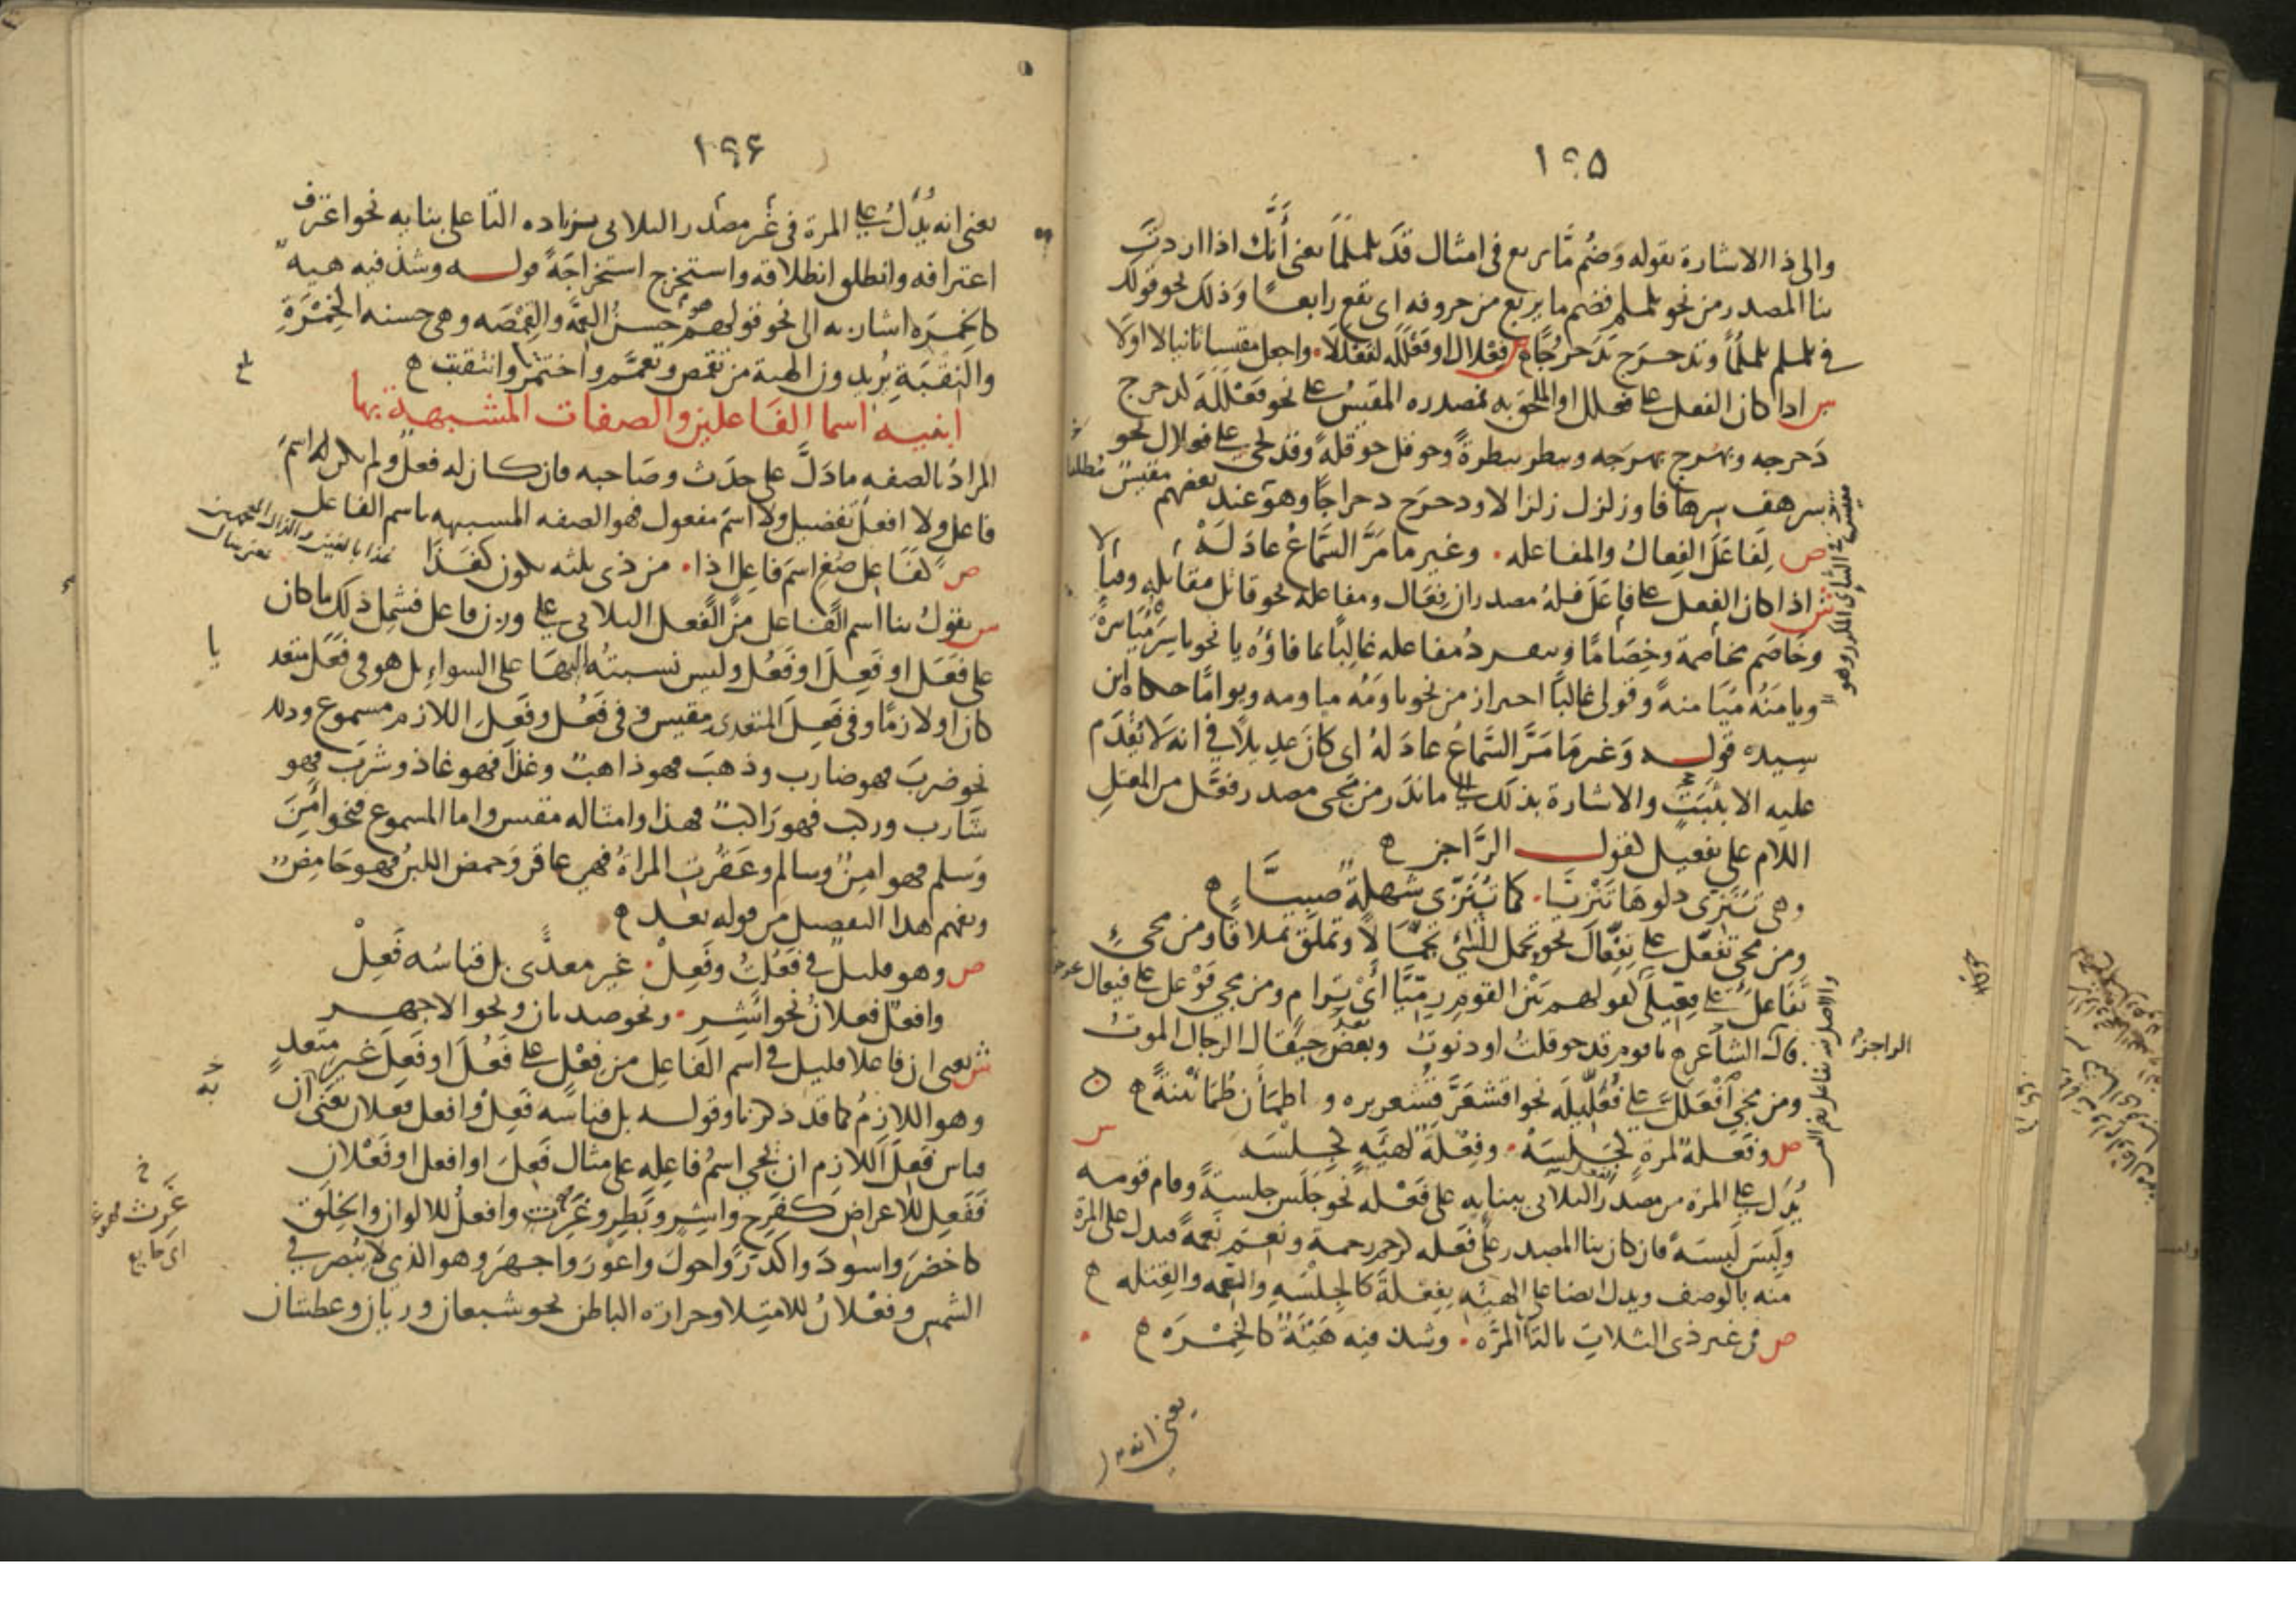 ١٩٥
والى ذا الاشارة بقوله وَضُم مَّا يربع فى امثال قدَ تلملمَا يعنى أَنَّك اذا اردتَ
بنا المصدر من نحو تلملم فضم ما يربع من حروفه اى يقع رابعًا وَذلك نحو قولك
فى تلملم تلملُمًا وتدحرج تَدَحرُجًا ه ص فِعْلال او فَعْلَلَه لفَعْلَلَا. واجعل مقيسا ثانيا لا اولَا
س اذا كان الفعل على فعلل او الملحق به فمصدره المقيسُ على نحو فَعْلَلَة كدحرج
دَحرجه وبهرج بهرَجه وبيطر بيطرةً وحوقل حوقلةً وقد يجى على فعلال نحو
سرهف سرهافا وزلزل زلزالا ودحرَج دحراجًا وهو عند بعضهم مقيسٌ مُطلقا
ص لِفاعَلَ الفِعالُ والمفاعله. وغير ما مَرَّ السَّماعُ عادَلَهْ
ش اذا كان الفعل على فاعَلَ فلهُ مصدران فِعَال ومفاعله نحو قاتل مقاتله وقتالا
وخَاصَم مخاصمة وخِصَامًا وينفردُ مفاعله غالبًا بما فاؤُه يا نحو ياسَرَ مُيَاسَرةً
ويا مَنَهُ مُيَا منةً وقولى غالبًا احتراز من نحو ياوَمَه مياومه ويوامًا حكاه ابن
سِيده قولـه وَغير مَا مَرَّ السَّماعُ عادَ لَهُ اى كانَ عدِيلًا فى انه لَا يُقدَم
عليه الا بثبَتٍ والاشارة بذلك الى ما نَدَر من مَجى مصدر فَعَّل من المعتل
اللام على تفعيل كقولـ الرَّاجز ه
وهى تُنَزِّى دلوهَا تَنْزيَّا. كما تُنَزِّى شهلةٌ صبيَّا ه
ومن مجى تفعّل على تِفِعَّالَ نحو تحمل الشئ تِحمَّالًا وتملّق تِملاقًا ومن مجئ
تَفَاعلَ على فِعِّيلَى كقولهم بَيْن القومِ رِمِّيَّا أَىْ تَرَامٍ ومن مجى فَوْعل على فيعال
قال الشاعر ه يا قوم قد حوقلتُ او دنوتُ وبعض حيقال الرجال الموتُ
ومن مجى افْعَلَلَّ على فُعَلِّيلَه نحو اقشعَرَّ قُشَعريره و اطمَأن طُمَأنينةً ه
ص وفَعلة لمرةٍ كَجَلسهْ. وفِعْلَة لهيَه كجِلْسَه
يُدَلّ على المرة من مصدر الثلاثى ببنايه على فَعْله نحو جَلَس جلسةً وقام قومه
ولَبِسَ لَبسَةً فان كان بنا المصدر على فَعله كرحم رحمة ونعم نَعمةً فيدل على المرة
منه بالوصف ويدل ايضا على الهيئه بفِعْلة كالجِلْسه والنِعمه والقِتله ه
ص فى غير ذى الثلاثِ بالتا المَرَّه. وشذ فيه هَيْئَةٌ كالخِمْرَه ه
يعنى انه
الراجز
١٩٦
يعنى انه يُدَلُّ على المرة فى غير مصدر الثلاثى بزياده التا على بنايه نحو اغترف
اعترافه وانطلق انطلاقه واستخرج استخراجَةً قولـه وشذ فيه هيه
كالخِمرَه اشار به الى نحو قولهم هو حَسنُ العِمَّة والقِمْصَه وهى حسنه الخِمْرَةِ
والنَقبَةِ يُريدون الهية من تقمص وتَعمَّم واختمر وانتقبت ه
ابنيـه اسما الفَاعلين والصفات المشبهة بها
المرادُ بالصفه ما دَلَّ على حدَث وصَاحبه فان كان له فعل ولم يكن له اسمَ
فاعل ولا افعلَ تفضيل ولا اسمَ مفعول فهو الصفه المشبهه باسم الفاعل
ص كَفَاعلٍ صُغِ اسمَ فاعِلٍ اذا. من ذى ثلثه يكون كغَذَا
س يقول بنا اسم الفَاعل من الفعل الثلاثى على وزن فاعل فشمِل ذلك ما كان
على فَعَل او فَعِلَ او فَعُل وليس نسبتُه اليها على السواءِ بل هو فى فَعَل متعد
كان او لازمًا وفى فَعِلَ المتعدى مقيس وفى فَعُل وفَعِلَ اللازم مسموع وذلك
نحو ضربَ فهو ضارب وذهبَ فهو ذاهبٌ وغذا فهو غاذ وشربَ فهو
شارب وركب فهو رَاكبٌ فهذا وامثاله مقيس واما المسموع فنحو امِنَ
وَسلم فهو امِنٌ وسالم وعَقُرت المراة فهى عاقر وَحمض اللبنُ فهو حَامِضٌ
ويفهم هذا التفصيل من قوله بعد ه
ص وهو قليلٌ فى فَعُلتُ وفَعِلْ. غيرَ معدًّى بل قياسُه فَعِلْ
وافعلٌ فعلانُ نحو أَشِرِ. ونحو صديان ونحو الاجهر
ش يعنى ان فاعلا قليل فى اسم الفَاعِل من فِعْل على فَعُلَ او فَعِلَ غير متعدٍ
وهو اللازمُ كما قد ذكرنا وقوله بل قياسُه فَعِلٌ وافعل فعلان يعنى ان
قياس فعِلَ اللازم ان يجى اسمُ فاعِله على مثال فَعِلَ او افعل او فَعْلان
فَفَعِل للاعراض كفَرِح واشِر وبَطِر وغَرِث وافعلُ للالوان والخِلَق
كاخضرَ واسودَ واكدَرَ واحولَ واعوَرَ واجهرَ وهو الذى لا يُبصر فى
الشمس وفَعْلانُ للامتِلا وحرارة الباطن نحو شبعان وريان وعطشان